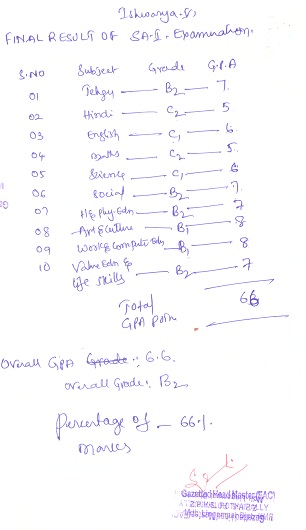 Ishwarya.S,
FINAL RESULT OF SA-I. Examination.
S.NO Subject Grade G.P.A
01 Telugu — B2 — 7.
02 Hindi — C2 — 5
03 English — C1 — 6.
04 Maths — C2 — 5.
05 Science — C1 — 6
06 Social — B2 — 7.
07 H&phy.Edn — B2 — 7
08 Art&Culture — B1 — 8
09 Work&Computer Edn B1 — 8
10 Value Edn &
life skills — B2 — 7
Total 66
GPA Point
Overall GPA Grade : 6.6.
Overall Grade: B2
Percentage of — 66%.
Marks
Gazetted Head Master (FAC)